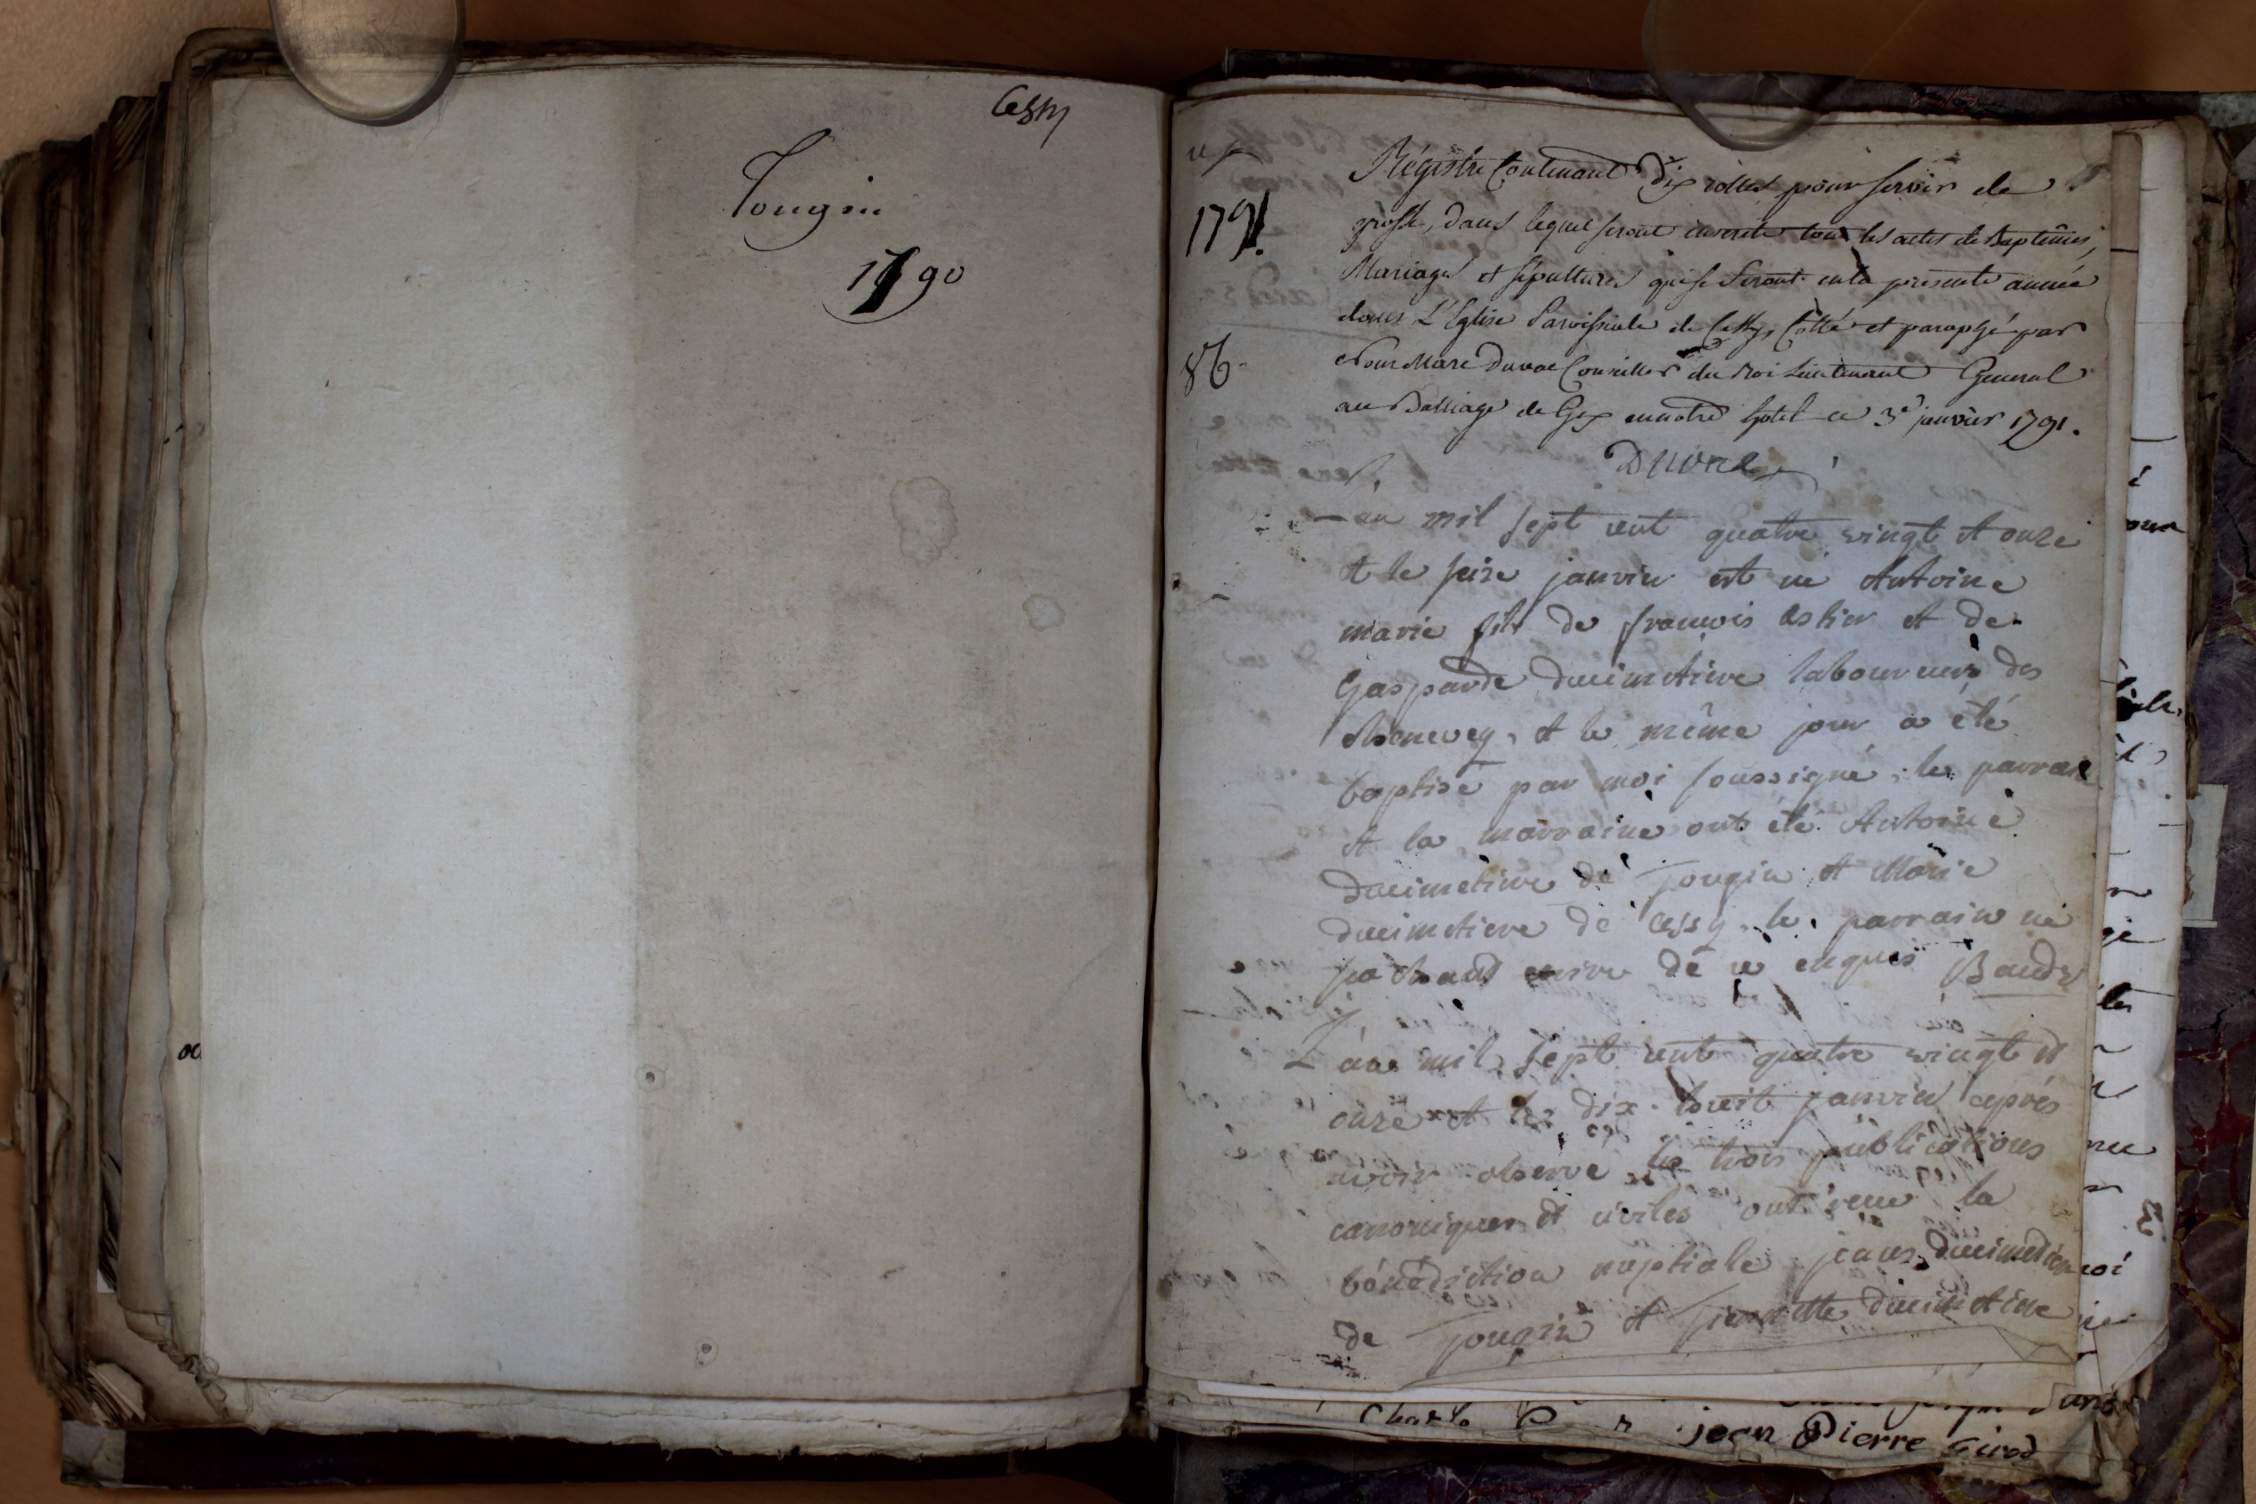 Cessy
Tougin
1790
1791.
86
Régistre Contenant dix rolles pour servir de
grosse, dans lequel seront inscrits tous les actes de Baptêmes,
Mariages et sépultures qui se feront en la présente année
dans L'Eglise Paroissiale de Cessy, Cotté et paraphé par
Nous Marc Duval Conseiller du Roi Lieutenant General
au Balliage de Gex en notre hotel ce 3e janvier 1791.
Duval
L'an mil sept cent quatre vingt et onze
et le seize janvier est né Antoine
marie fils de françois astier et de
Gasparde ducimetiere laboureurs des
chenevey, et le même jour a été
baptisé par moi soussigné, le parrain
et la marraine ont été Antoine
ducimetiere de Tougin et Marie
ducimetiere de Cessy, le parrain ne
sachant ecrire de ce enquis Baudy
L'an mil sept cent quatre vingt et
onze et le dix huit janvier après
avoir observé les trois publications
canoniques et civiles ont reçu la
bénédiction nuptiale jean ducimetiere
de Tougin et pernette ducimetiere
jean Pierre Girod